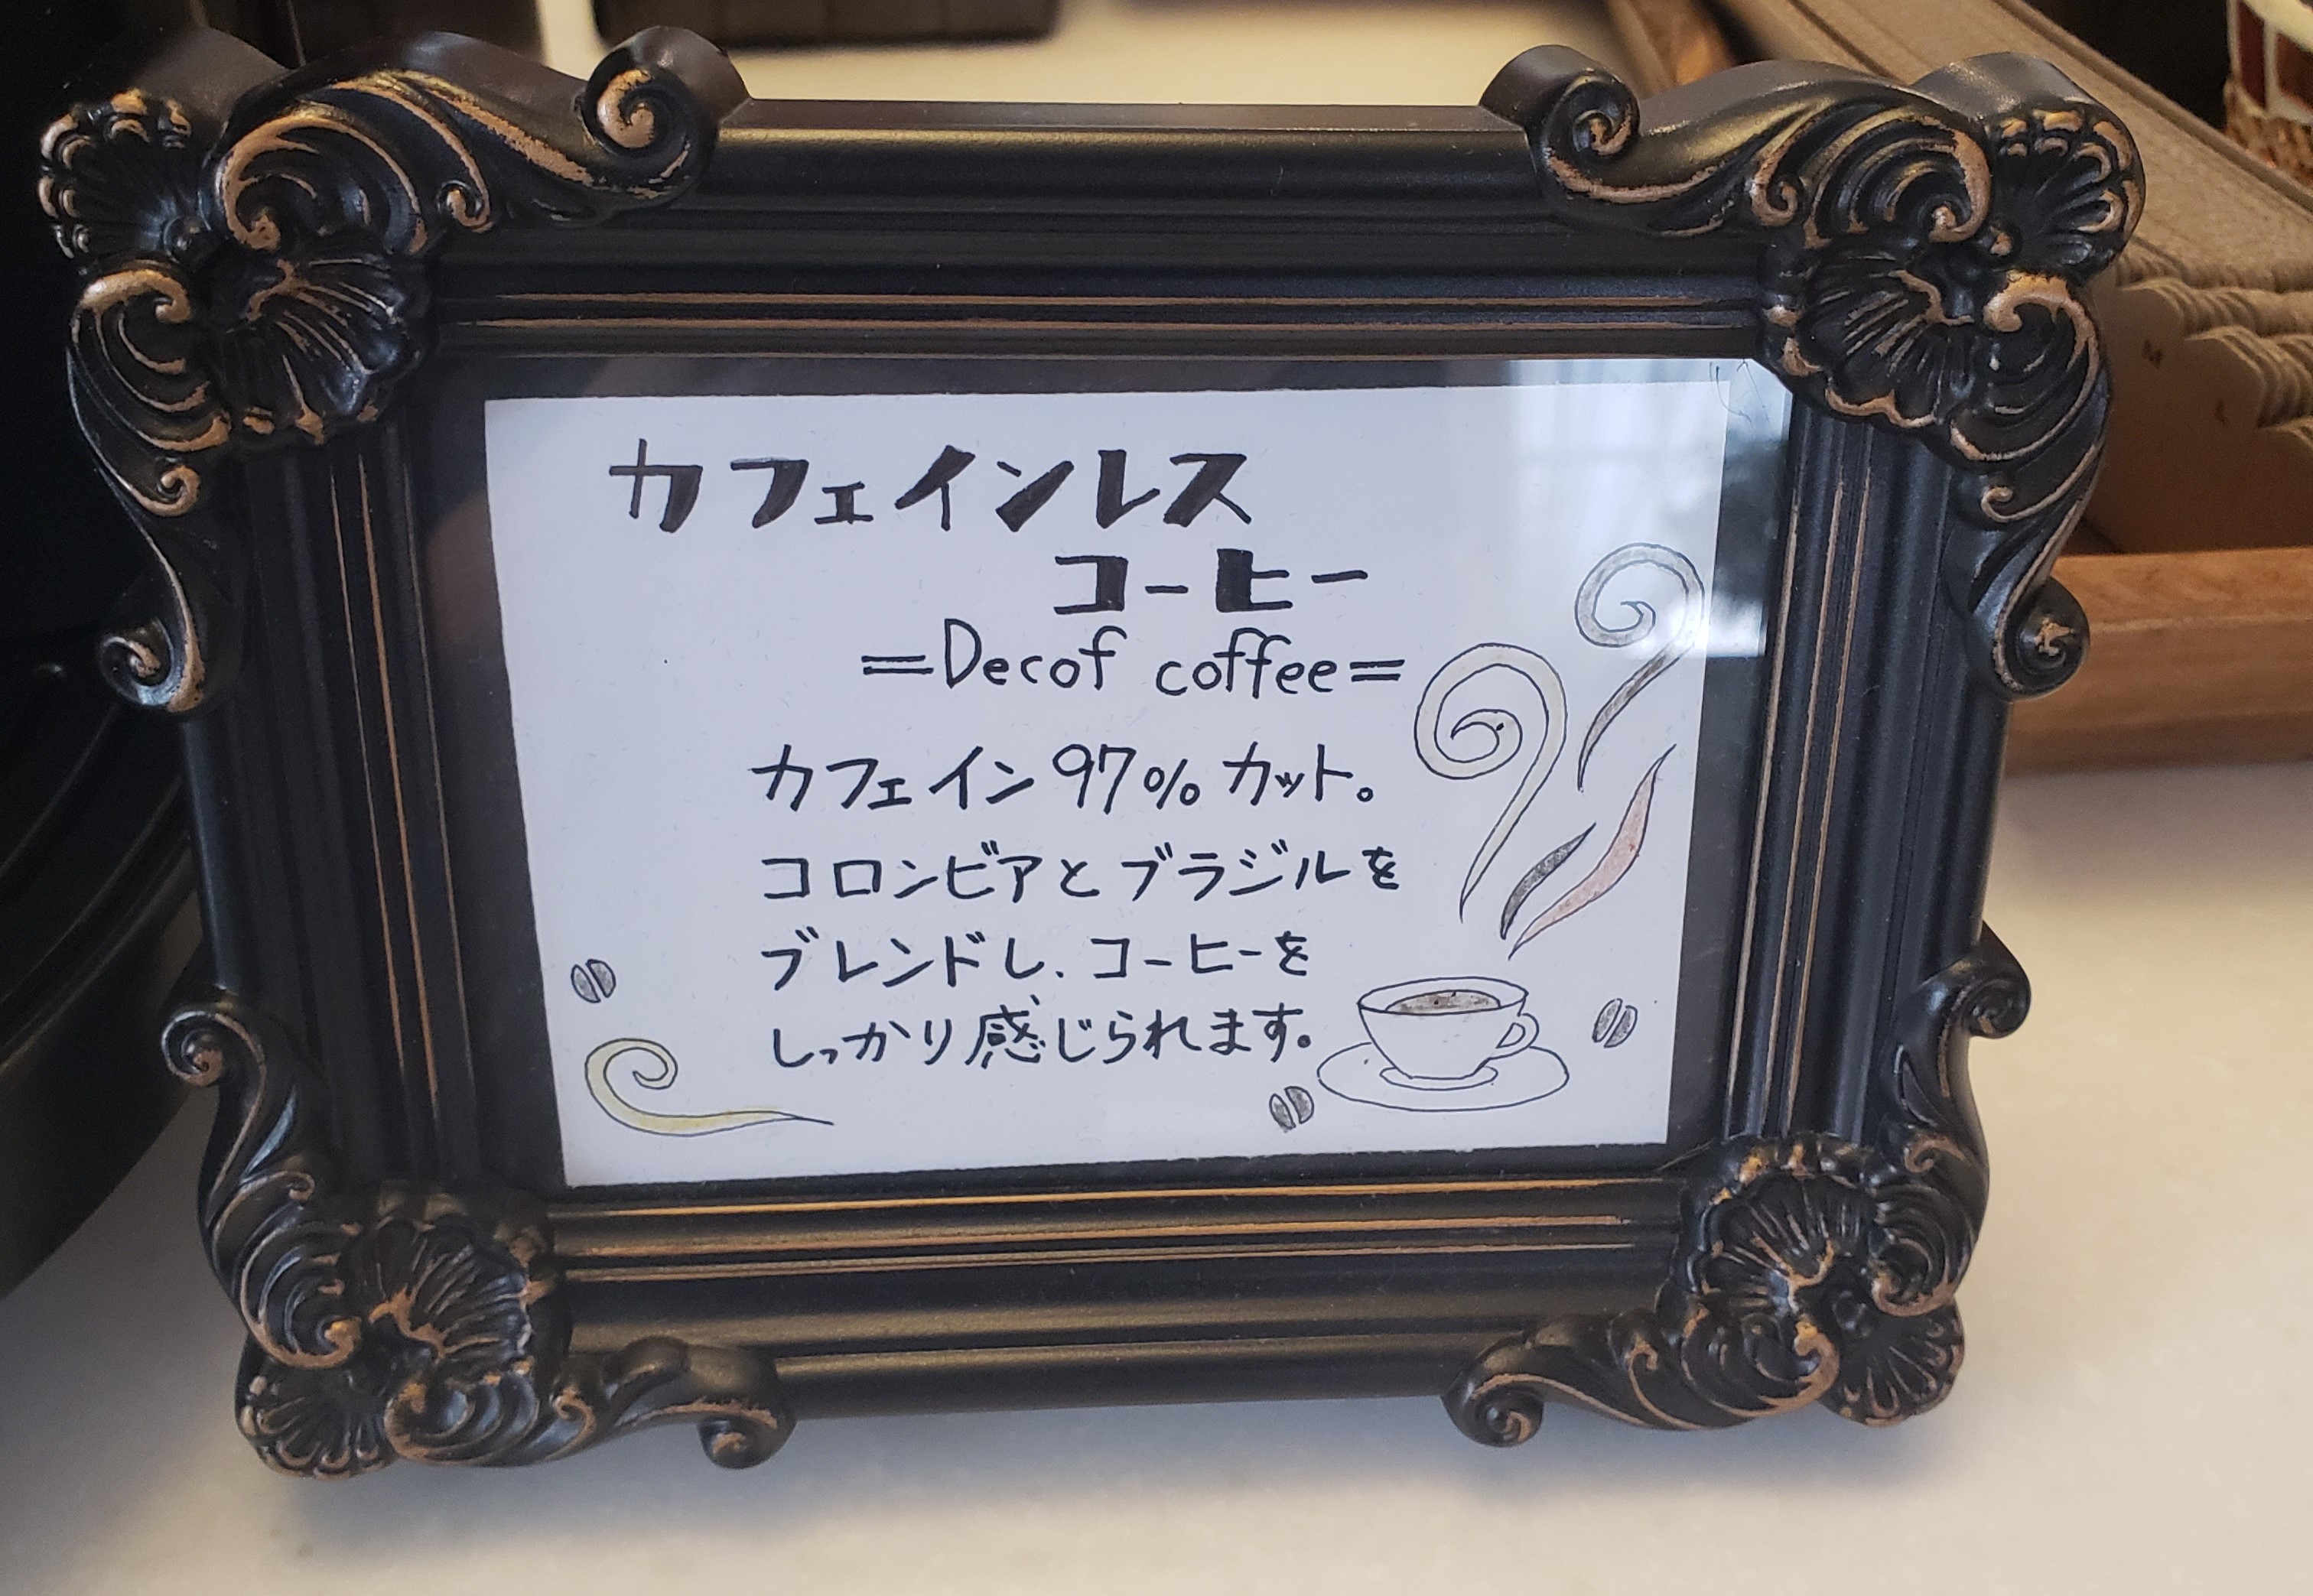 カフェインレス
コーヒー
=Decof coffee=
カフェイン97%カット。
コロンビアとブラジルを
ブレンドし、コーヒーを
しっかり感じられます。
M
L